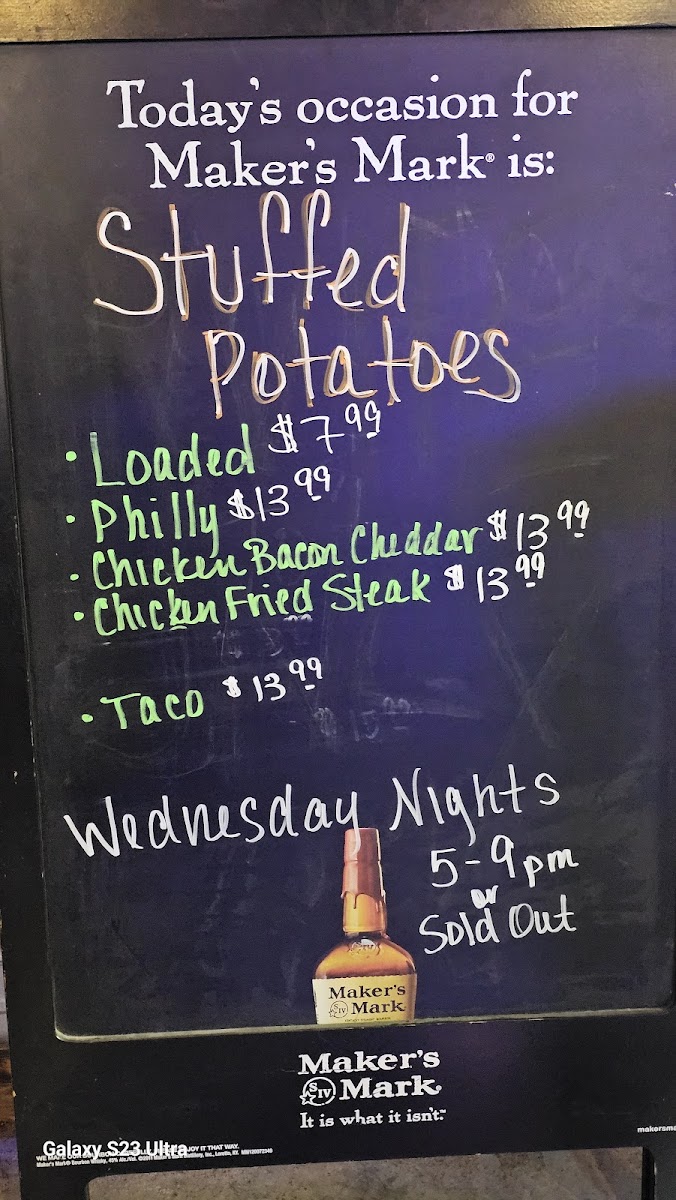 Today's occasion for
Maker's Mark® is:
Stuffed
Potatoes
• Loaded $7.99
• Philly $13.99
• Chicken Bacon Cheddar $13.99
• Chicken Fried Steak $13.99
• Taco $13.99
Wednesday Nights
5-9pm
or
Sold Out
Maker's
SIV Mark
Maker's
SIV Mark
It is what it isn't.™
Galaxy S23 Ultra